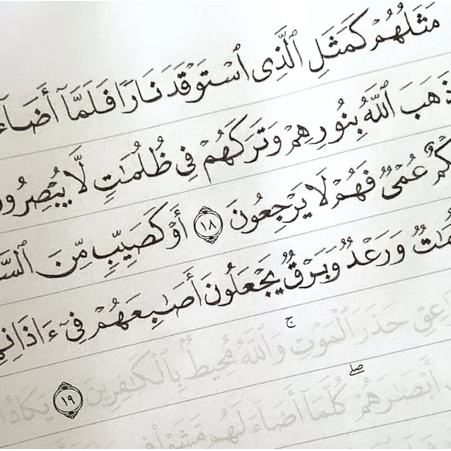 مَثَلُهُمْ كَمَثَلِ ٱلَّذِى ٱسْتَوْقَدَ نَارًا فَلَمَّآ أَضَآءَ
ذَهَبَ ٱللَّهُ بِنُورِهِمْ وَتَرَكَهُمْ فِى ظُلُمَٰتٍ لَّا يُبْصِرُو
عُمْىٌ فَهُمْ لَا يَرْجِعُونَ ١٨ أَوْ كَصَيِّبٍ مِّنَ ٱلسَّ
وَرَعْدٌ وَبَرْقٌ يَجْعَلُونَ أَصَٰبِعَهُمْ فِىٓ ءَاذَانِهِ
حَذَرَ ٱلْمَوْتِ ۚ وَٱللَّهُ مُحِيطٌۢ بِٱلْكَٰفِرِينَ ١٩ يَكَادُ
أَبْصَٰرَهُمْ ۖ كُلَّمَآ أَضَآءَ لَهُم مَّشَوْا۟